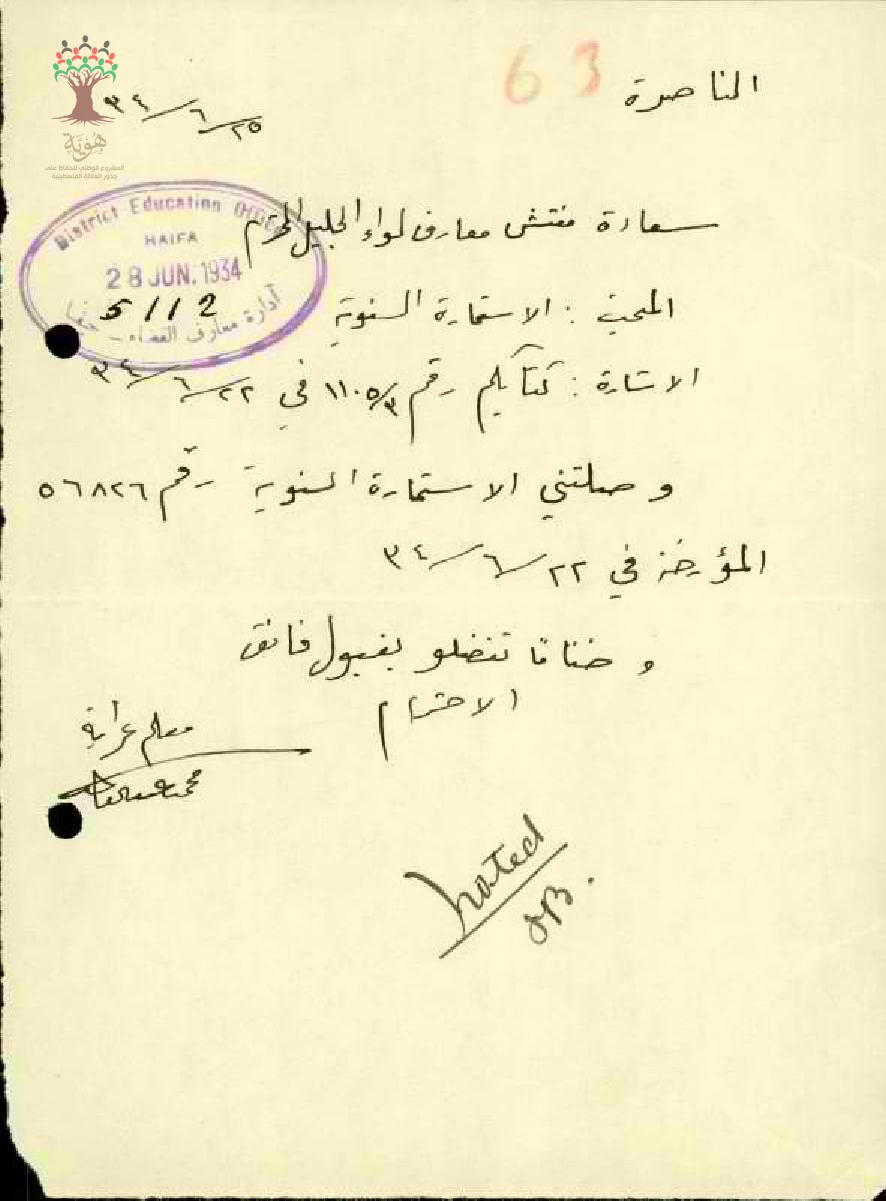 63
الناصرة
٢٥/٦/٣٤
هُويَّة
المشروع الوطني للحفاظ على
جذور العائلة الفلسطينية
سعادة مفتش معارف لواء الجليل المحترم
District Education Office
HAIFA
28 JUN. 1934
5112
أدارة معارف القضاء - حيفا
المبحث : الاستمارة السنوية
الاشارة : كتابكم رقم ١١٠٥/٣ في ٢٢/٦/٣٤
وصلتني الاستمارة السنوية رقم ٥٦٨٢٦
المؤرخة في ٢٢/٦/٣٤
وختاما تفضلو بقبول فائق
الاحترام
معلم عرابة
noted